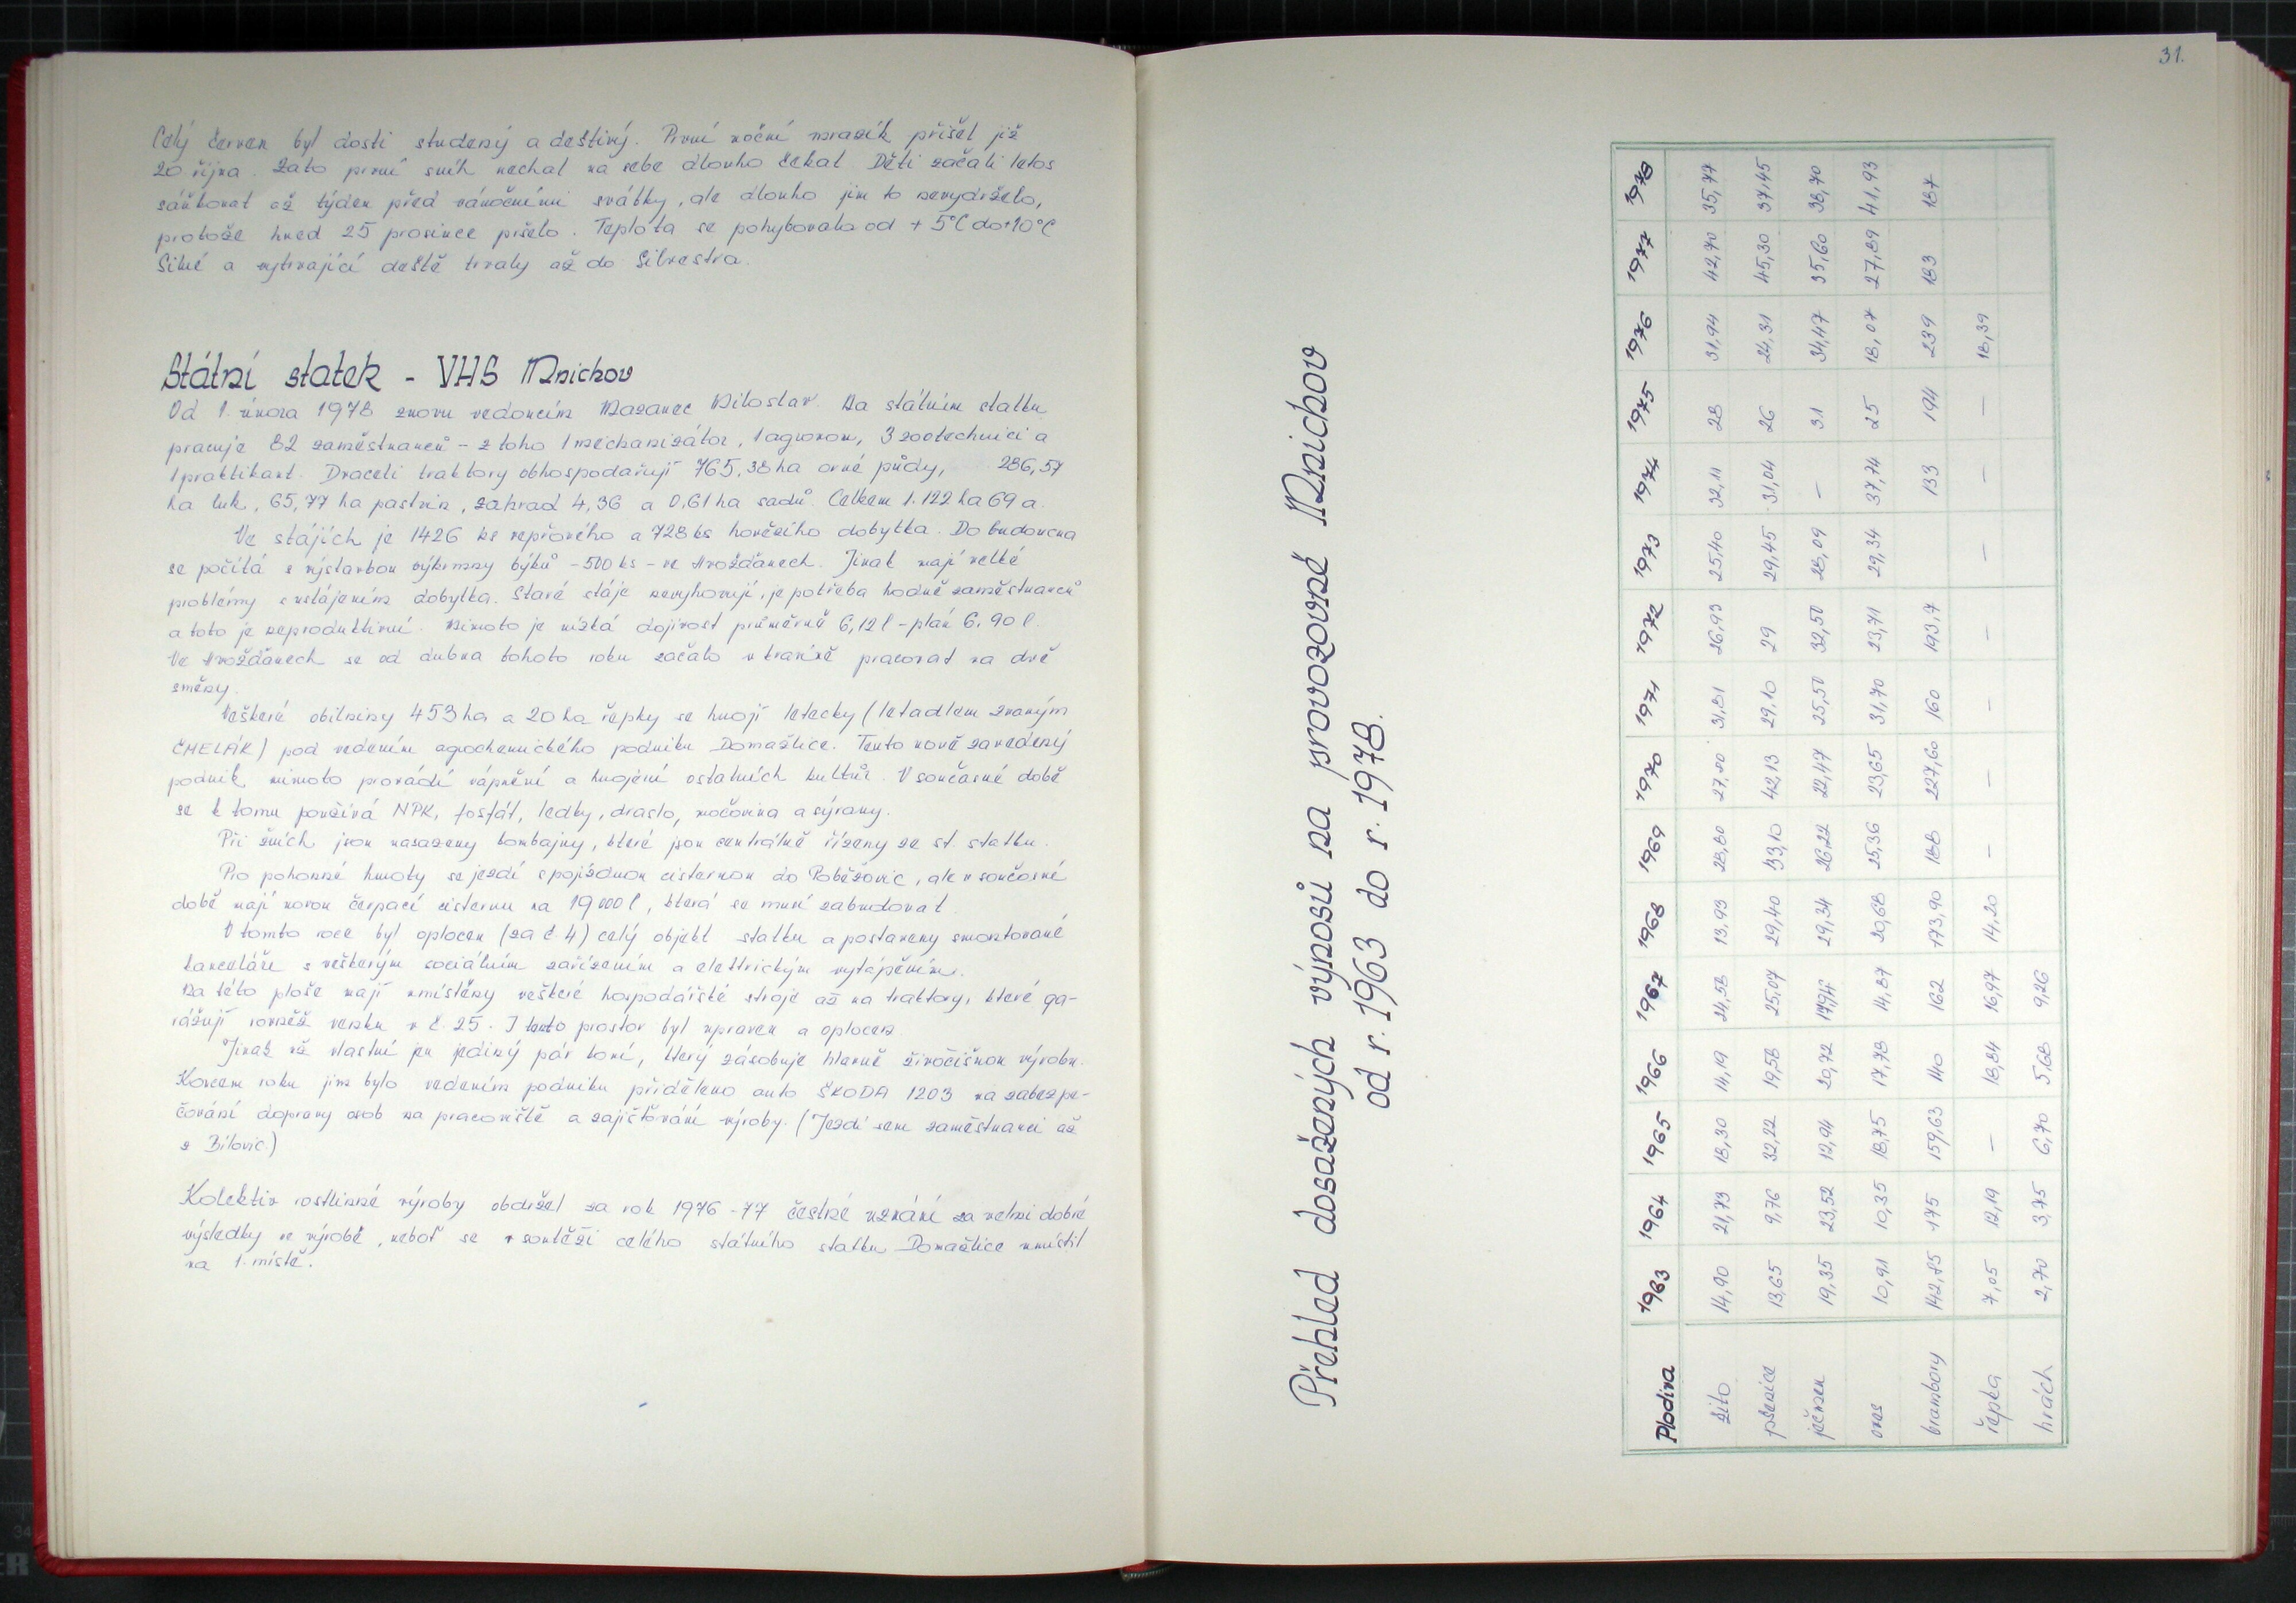 Celý červen byl dosti studený a deštivý. První noční mrazík přišel již
20 října. Zato první sníh nechal na sebe dlouho čekat. Děti začali letos
sáňkovat až týden před vánočními svátky, ale dlouho jim to nevydrželo,
protože hned 25 prosince pršelo. Teplota se pohybovala od + 5°C do +10°C
Silné a vytrvající deště trvaly až do Silvestra.
Státní statek - VHS Mnichov
Od 1. února 1978 znovu vedoucím Mazanec Miloslav. Na státním statku
pracuje 82 zaměstnanců - z toho 1 mechanizátor, 1 agronom, 3 zootechnici a
1 praktikant. Dvaceti traktory obhospodařují 765,38 ha orné půdy, 286,57
ha luk, 65,77 ha pastvin, zahrad 4,36 a 0,61 ha sadů. Celkem 1.122 ha 69 a.
Ve stájích je 1426 ks vepřového a 728 ks hovězího dobytka. Do budoucna
se počítá s výstavbou výkrmny býků - 500 ks - ve Hvožďanech. Jinak mají velké
problémy s ustájením dobytka. Staré stáje nevyhovují, je potřeba hodně zaměstnanců
a toto je neproduktivní. Mimoto je nízká dojivost průměrně 6,12 l - plán 6.90 l.
Ve Hvožďanech se od dubna tohoto roku začalo v kravíně pracovat na dvě
směny.
Veškeré obilniny 453 ha a 20 ha řepky se hnojí letecky (letadlem zvaným
ČMELÁK) pod vedením agrochemického podniku Domažlice. Tento nově zavedený
podnik mimoto provádí vápnění a hnojení ostatních kultur. V současné době
se k tomu používá NPK, fosfát, ledky, draslo, močovina a sýrany.
Při žních jsou nasazeny kombajny, které jsou centrálně řízeny ze st. statku.
Pro pohonné hmoty se jezdí s pojízdnou cisternou do Poběžovic, ale v současné
době mají novou čerpací cisternu na 19 000 l, která se musí zabudovat
V tomto roce byl oplocen (za č. 4) celý objekt statku a postaveny smontované
kanceláře s veškerým sociálním zařízením a elektrickým vytápěním.
Na této ploše mají umístěny veškeré hospodářské stroje až na traktory, které ga-
rážují rovněž venku v č. 25. I tento prostor byl upraven a oplocen.
Jinak už vlastní jen jediný pár koní, který zásobuje hlavně živočišnou výrobu.
Koncem roku jim bylo vedením podniku přiděleno auto ŠKODA 1203 na zabezpe-
čování dopravy osob na pracoviště a zajišťování výroby. (Jezdí sem zaměstnanci až
z Bílovic.)
Kolektiv rostlinné výroby obdržel za rok 1976 - 77 čestné uznání za velmi dobré
výsledky ve výrobě, neboť se v soutěži celého státního statku Domažlice umístil
na 1. místě.
31.
Přehled dosažených výnosů na provozovně Mnichov
od r. 1963 do r. 1978.
Plodina 1963 1964 1965 1966 1967 1968 1969 1970 1971 1972 1973 1974 1975 1976 1977 1978
žito 14,90 21,73 18,30 14,19 24,58 13,93 28,80 27,80 31,81 26,93 25,40 32,11 28 31,94 42,70 35,77
pšenice 13,65 9,76 32,22 19,58 25,07 29,40 33,10 42,13 29,10 29 29,45 31,04 26 24,31 45,30 37,45
ječmen 19,35 23,52 12,94 20,72 17,94 29,34 26,22 22,47 25,50 32,50 28,09 - 31 34,47 35,60 38,70
oves 10,91 10,35 18,75 17,78 14,87 20,68 25,36 23,65 31,70 23,71 29,34 37,74 25 18,07 27,89 41,93
brambory 142,85 175 159,63 140 162 173,90 188 227,60 160 193,7 133 194 239 183 187
řepka 7,05 12,19 - 18,84 16,97 14,20 - - - - - - - 18,39
hrách 2,70 3,75 6,70 5,68 9,26